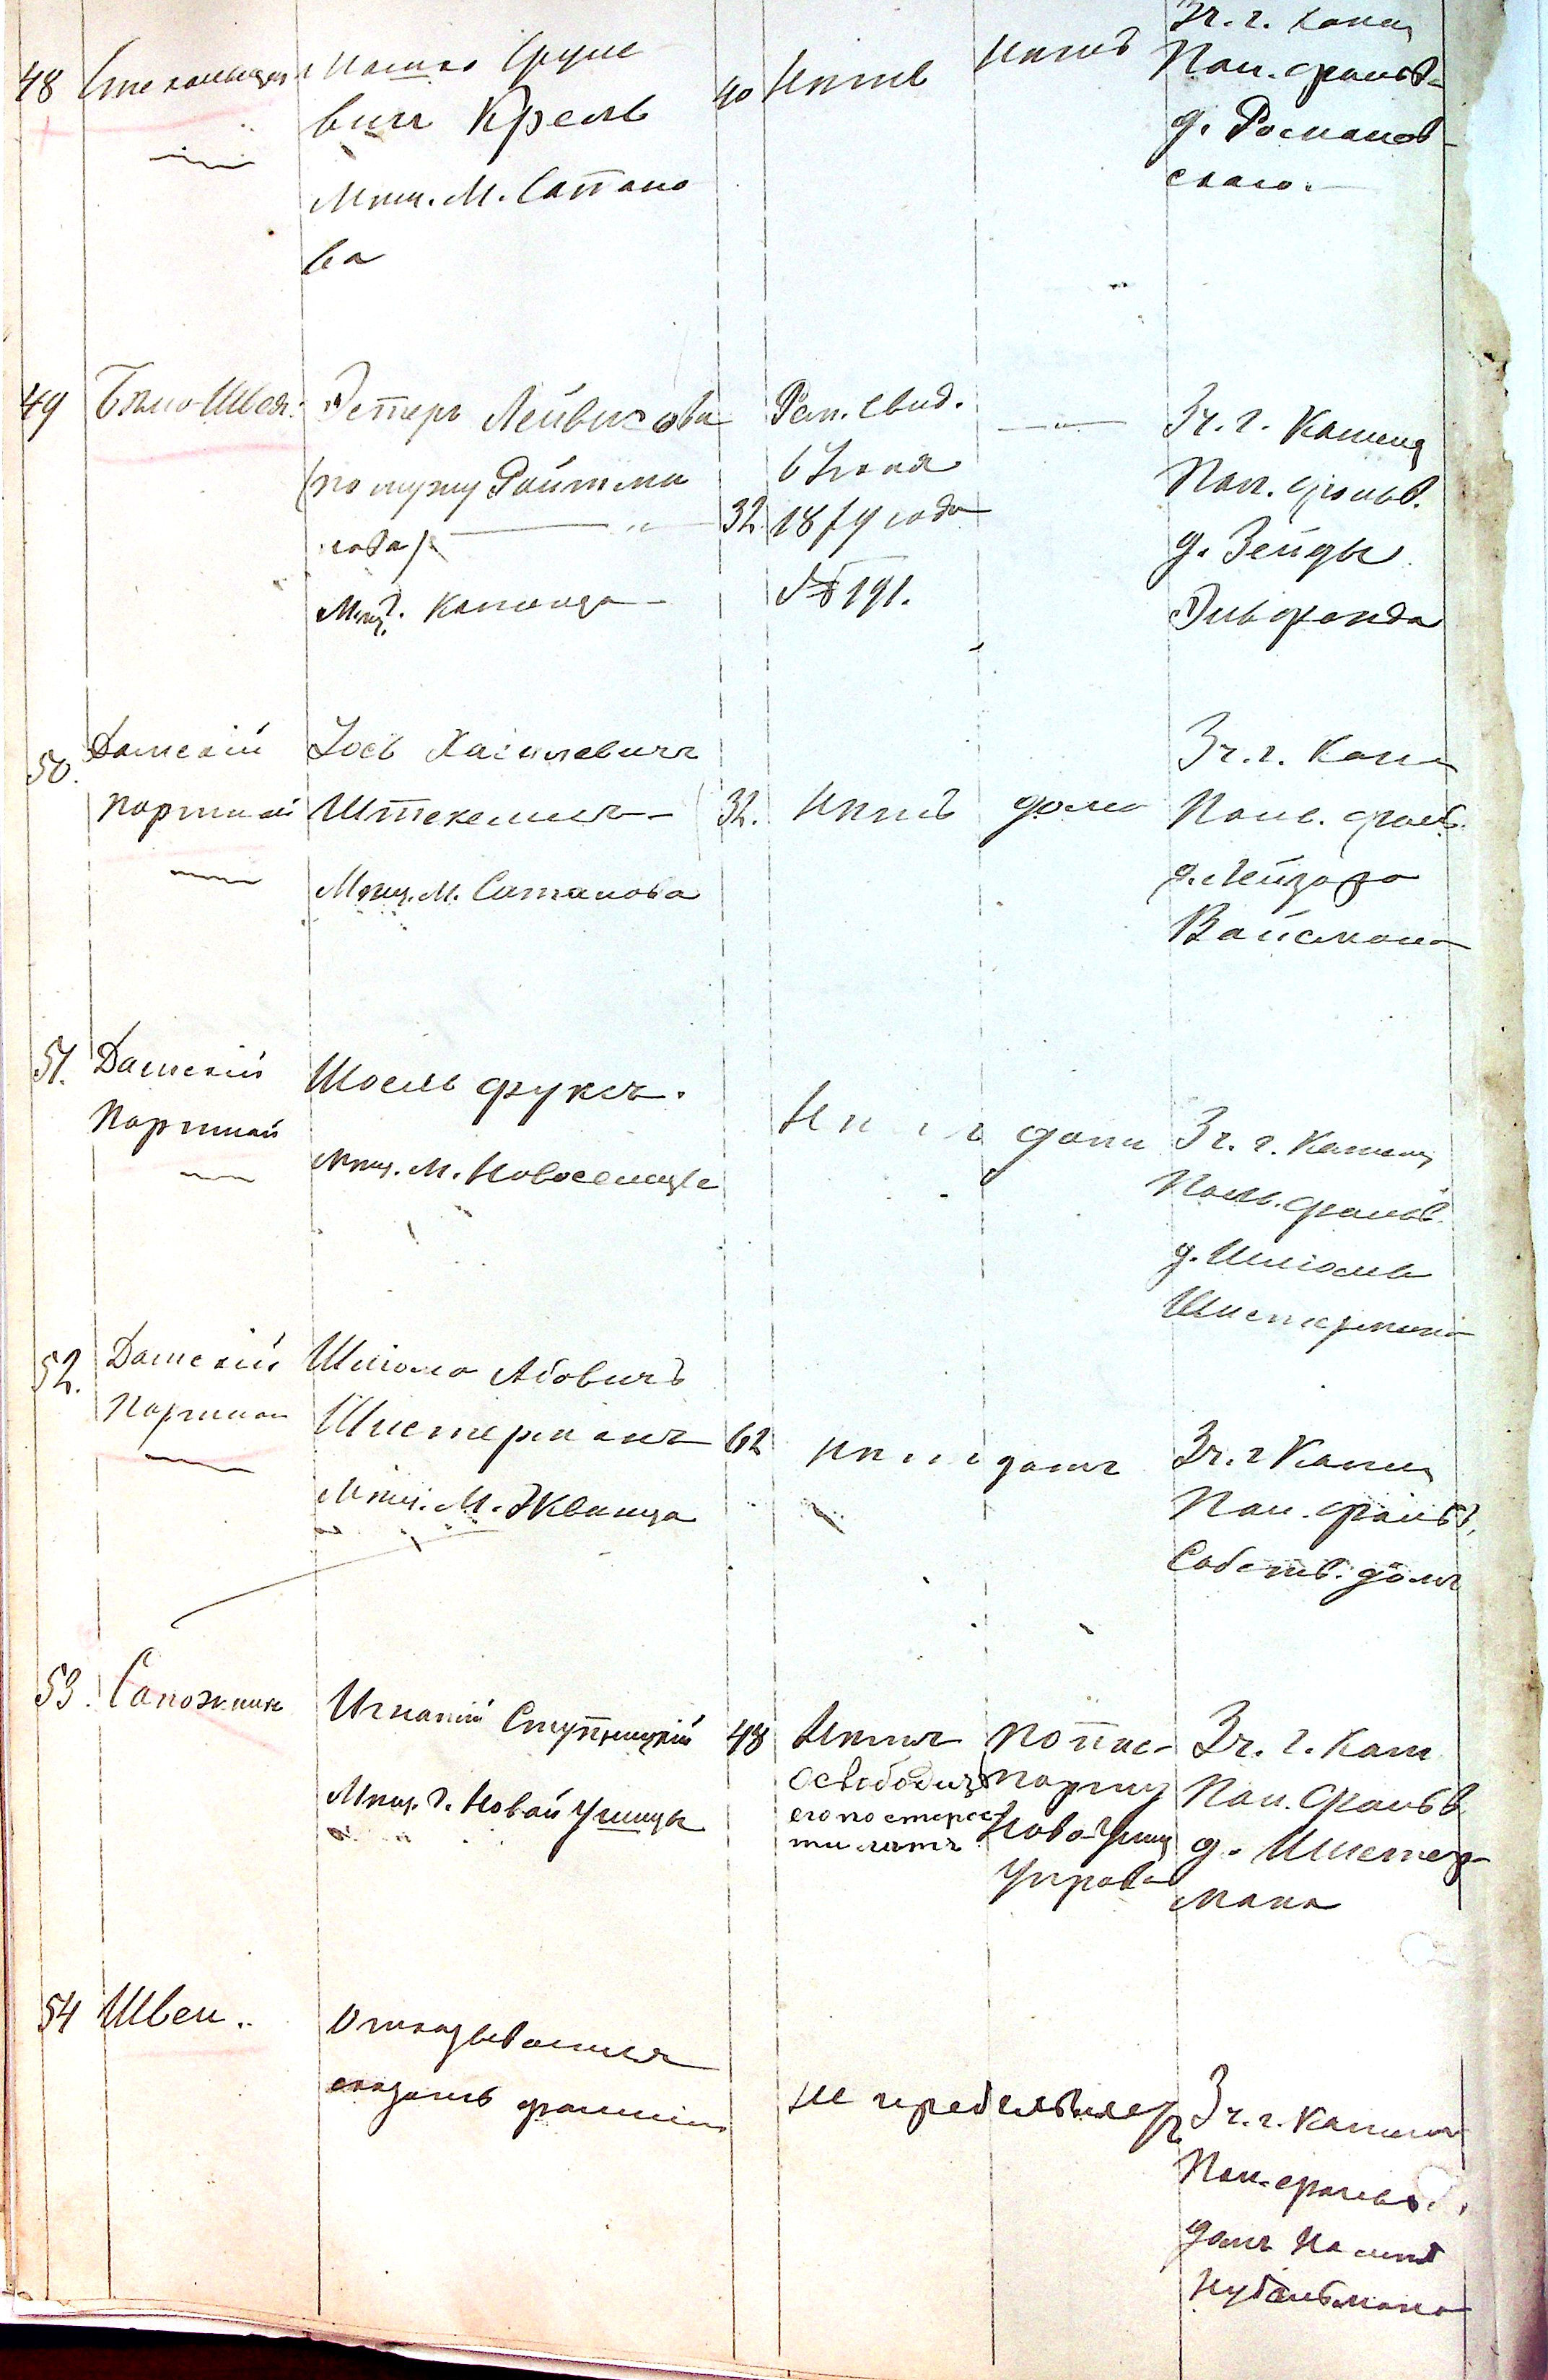 48 Стекольщикъ Мошко Сруле
вичъ Крель
Мѣщ. М. Сатано
ва
40 Нѣтъ
Нѣтъ
3 ч. г. Камен
Пол. фольв.
д. Романов-
скаго.
49 Бѣло-Швея. Эстеръ Лейвикова
(по мужу Ройтма
нова)
Мѣщ. г. Каменца
32 Рем. Свид.
6 Іюня
1879 года
№ 191.
3 ч. г. Каменц
Пол. фольв.
д. Зейды
50. Дамскій
портной
Іось Хаимевичъ
Штекельъ
Мѣщ. М. Сатанова
32. Нѣтъ дома
3 ч. г. Каме
Поль. фольв.
д. Лейзора
Вайсмана
51. Дамскій
Портной
Шоель Фуксъ.
Мѣщ. М. Новоселицы
Нѣтъ дома
3 ч. г. Каменц
Поль. фольв.
д. Шлiомы
Шистермана
52. Дамскій
Портной
Шліома Абовичъ
Шистерманъ
Мѣщ. М. Жванца
62 Нѣтъ дома
3 ч. г. Камен
Пол. фольв.
Собств. домъ
53. Сапожникъ Игнатій Ступницкій
Мѣщ. г. Новой Ушицы
48 Нѣтъ
освобожд
его по старос
ти лѣтъ
По пас-
порту
Ново-Ушиц
Управы
3 ч. г. Кам
Пол. Фольв
д. Шистер-
мана
54 Швея. Отказывается
сказать фамилію
не предъявляетъ
3 ч. г. Камен
Пол. фольв.
домъ
Нудельмана